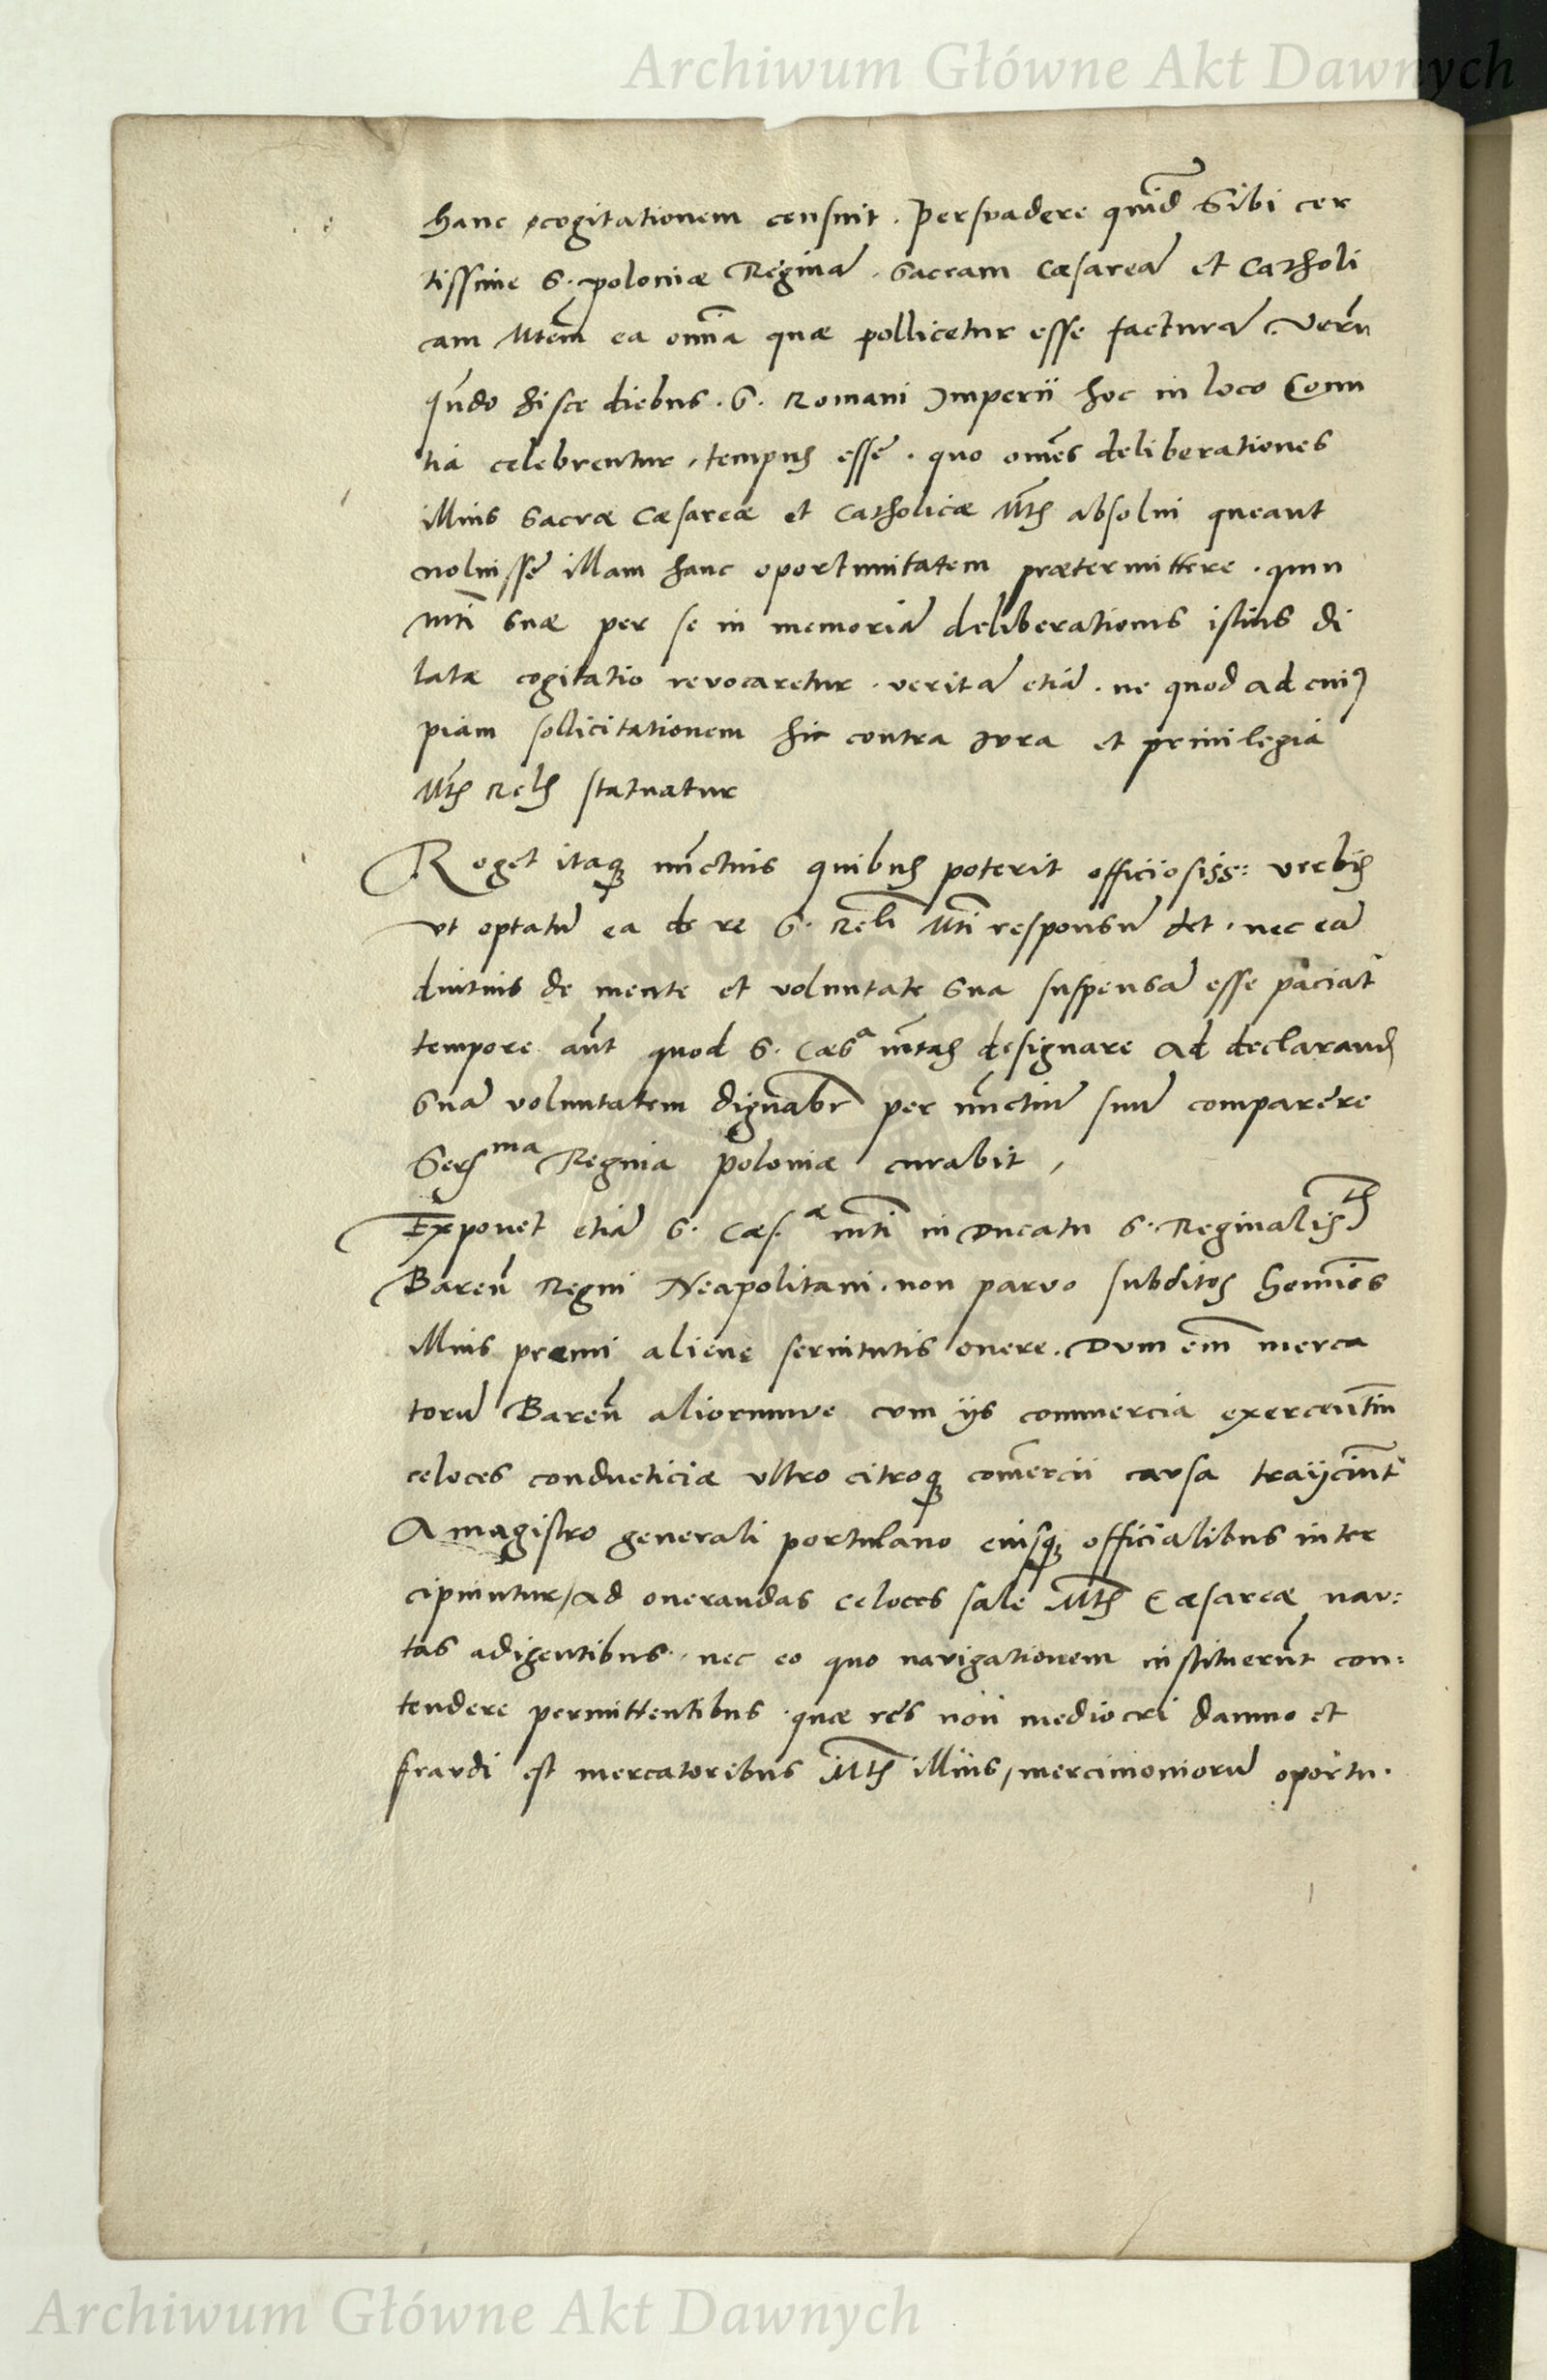 Archiwum Główne Akt Dawnych
hanc cogitationem censuit. Persuadere quid͠ Sibi cer
tissime S. poloniæ Reginã. Sacram Cæsareã et Catholi
cam Mtem̃ ea om̃ia quæ pollicetur esse facturã. Verũ
qñdo hisce diebus. S. Romani Imperii hoc in loco Comi
tia celebrentur, tempus esse. quo om̃es deliberationes
illius Sacræ Cæsareæ et Catholicæ Mt̃s absolui queant
noluisse illam hanc oportunitatem prætermittere. quin
mti̅ suæ per se in memoriã deliberationis istius di
latæ cogitatio revocaretur. veritã etiã. ne quod ad cuiꝰ
piam sollicitationem hic contra Jura et privilegia
Mt̃s Rels statuatur
Roget itaqꝫ nũctius quibus poterit officiosiss: verbis
ut optatũ ea de re S. Reli̅ Mti̅ responsũ det. nec eã
diutius de mente et voluntate sua suspensã esse paciat͛
tempore aũt quod S. Caesᵃ mt̃as designare ad declarand
suã voluntatem dignabr̃ per nũctiũ suũ comparere
Serᵐᵃ Regina poloniæ curabit,
Exponet etiã S. Cæs.ᵃᵉ mti̅ in Ducatu S. Reginalis Mt̃s
Bareñ Regni Neapolitani. non parvo subditos homĩes
illius præmi alienę servitutis onere. Dum em̃ merca
torũ Bareñ aliorumve cum ijs commercia exercentiũ
celoces conducticiæ ultro citroqꝫ com̃ercii causa traijciũt͛
A magistro generali portulano eiusqꝫ officialibus inter
cipiuntur, ad onerandas celoces sale Mt̃s Cæsareæ nau:
tas adigentibus. nec eo quo navigationem instituerũt con:
tendere permittentibus. quæ res non mediocri damno et
fraudi est mercatoribus Mt̃s illius, mercimoniorũ oportu.
Archiwum Główne Akt Dawnych